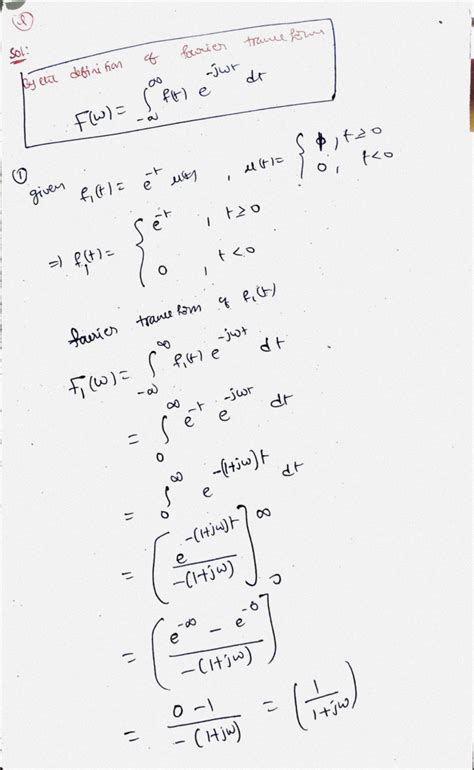 Sol:
By the definition of fourier transform
F(ω) = ∫_{-∞}^{∞} f(t) e^{-jωt} dt
① given f₁(t) = e^{-t} u(t), u(t) = { 1, t≥0
0, t<0
⇒ f₁(t) = { e^{-t}, t≥0
0, t<0
fourier transform of f₁(t)
F₁(ω) = ∫_{-∞}^{∞} f₁(t) e^{-jωt} dt
= ∫_0^∞ e^{-t} e^{-jωt} dt
= ∫_0^∞ e^{-(1+jω)t} dt
= [ e^{-(1+jω)t} / -(1+jω) ]_0^∞
= [ (e^{-∞} - e^{-0}) / -(1+jω) ]
= (0-1) / -(1+jω) = (1 / (1+jω))